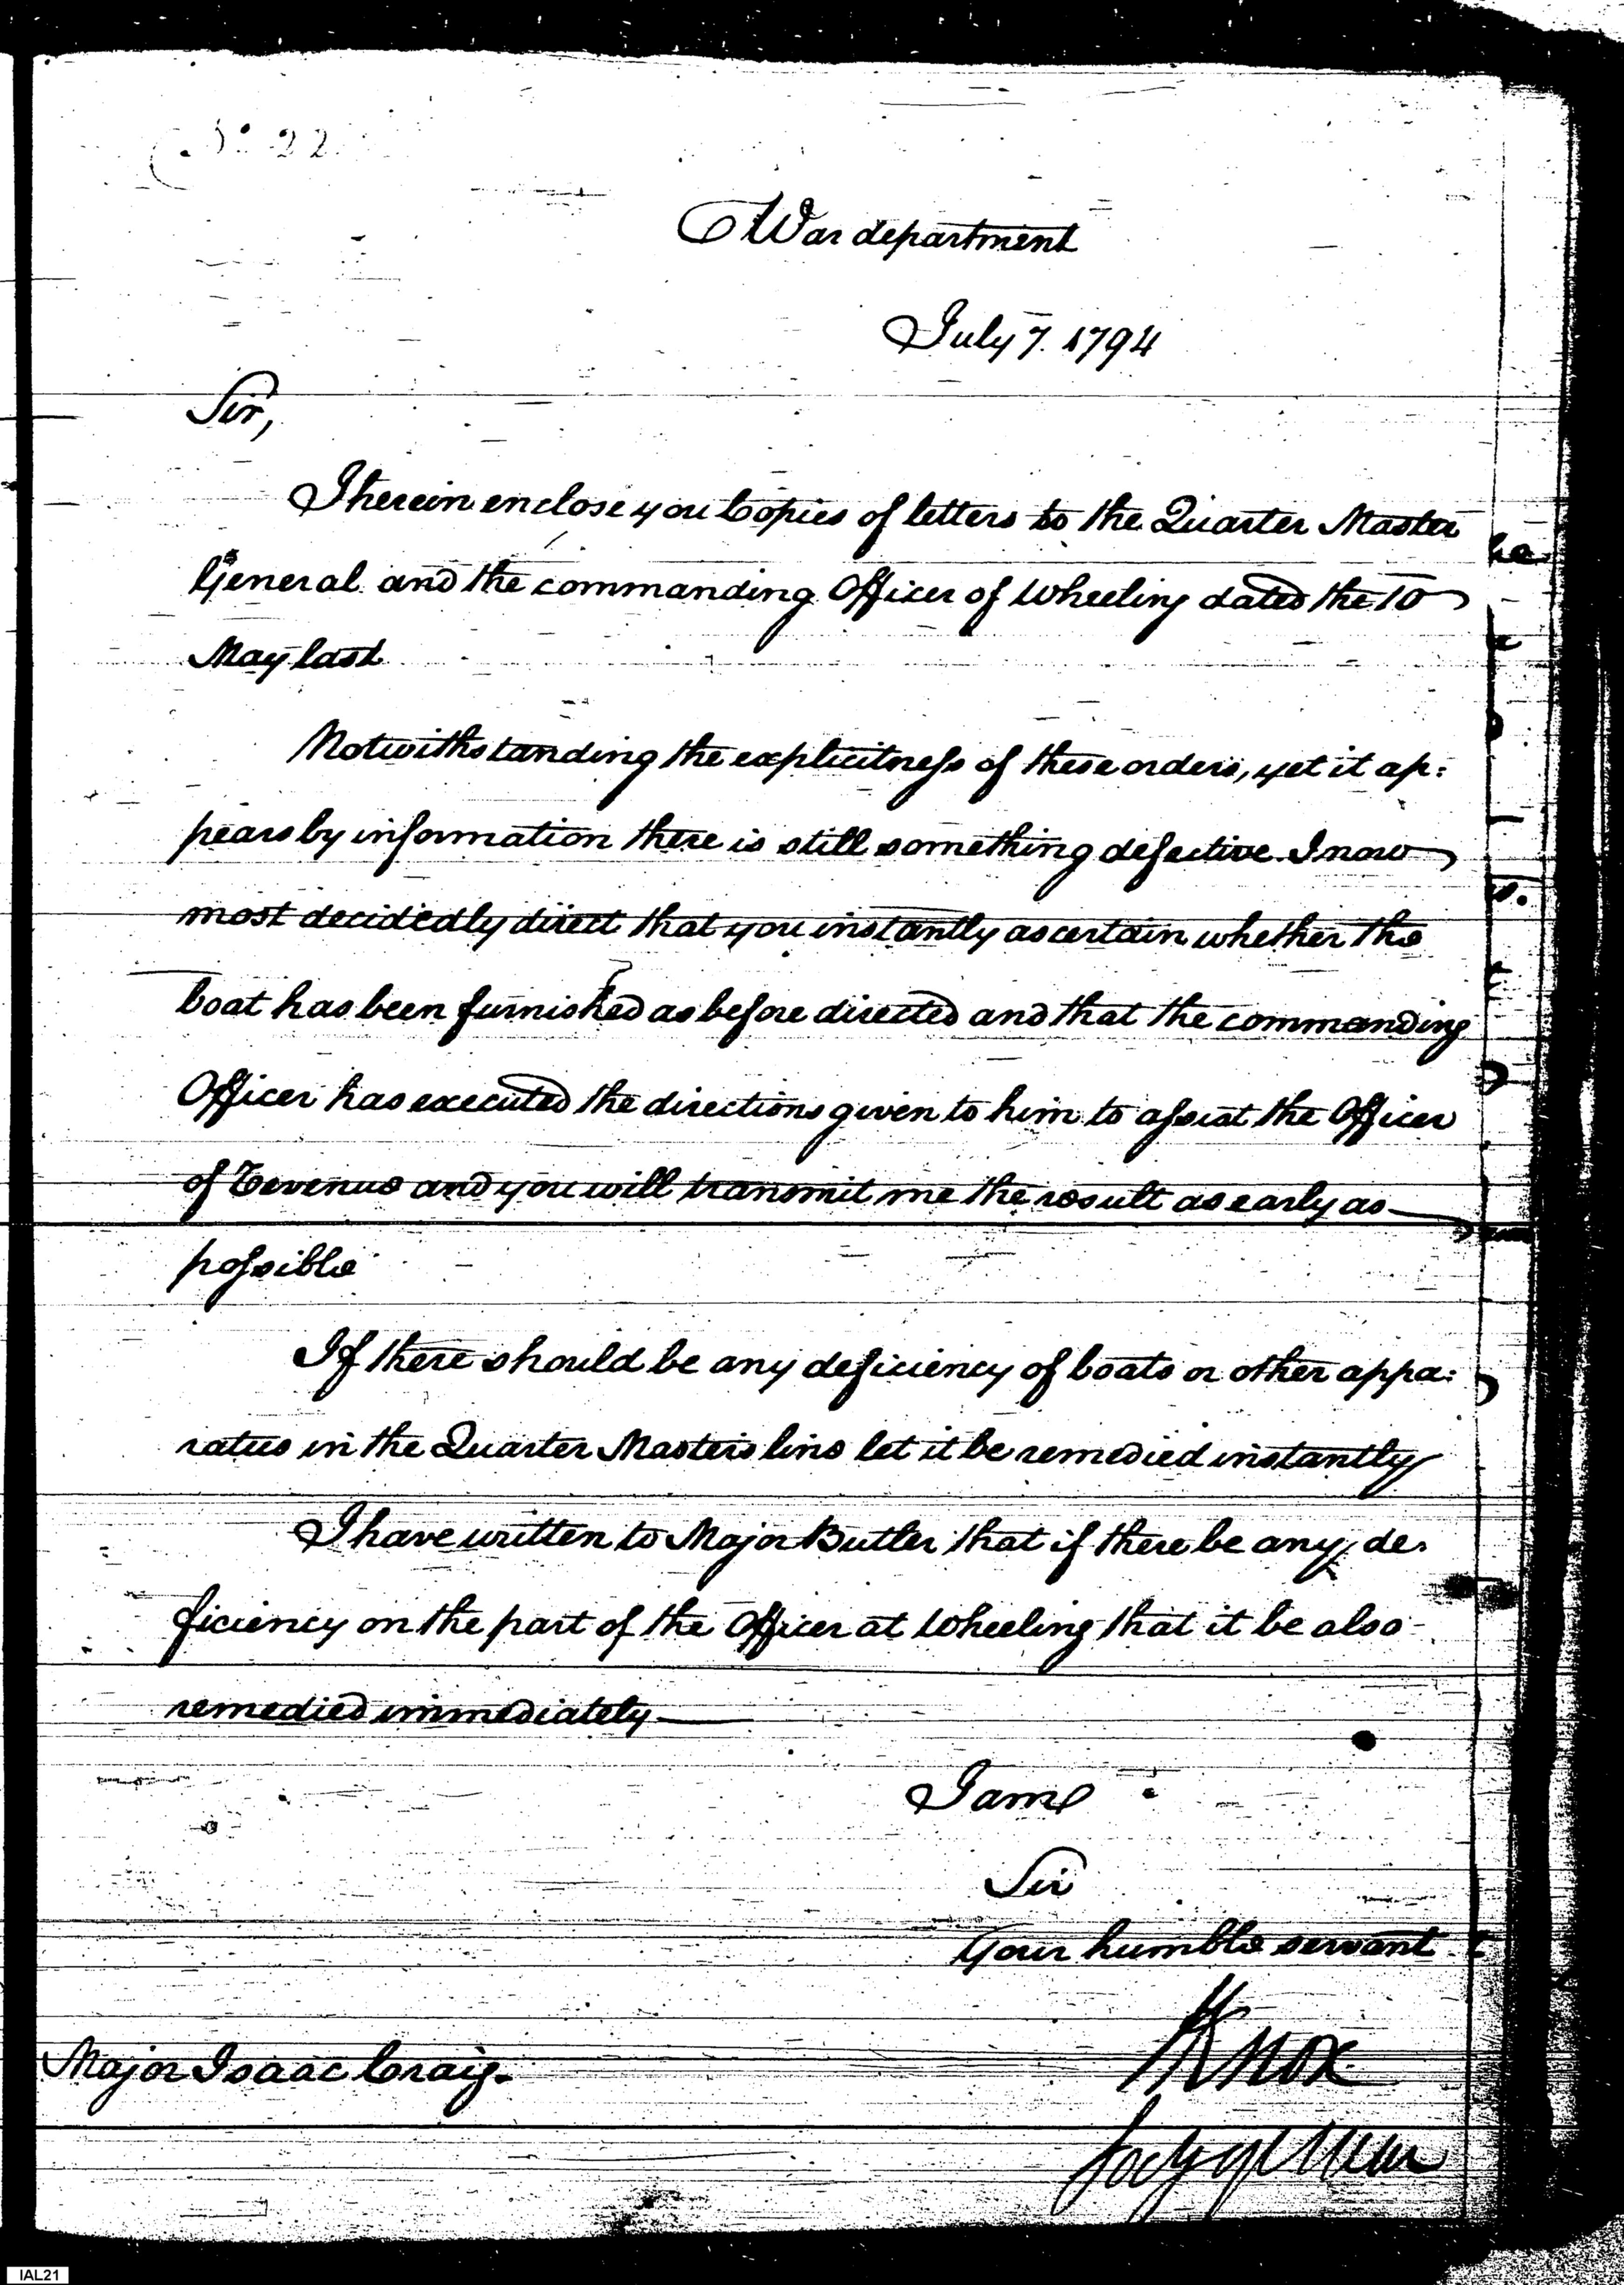 No 22
War department
July 7. 1794
Sir,
I herein enclose you Copies of letters to the Quarter Master
General and the commanding Officer of Wheeling dated the 10
May last
Notwithstanding the explicitness of these orders, yet it ap:
pears by information there is still something defective. I now
most decidedly direct that you instantly ascertain whether the
boat has been furnished as before directed and that the commanding
Officer has executed the directions given to him to assist the Officer
of Revenue and you will transmit me the result as early as
possible
If there should be any deficiency of boats or other appa:
ratus in the Quarter Masters line let it be remedied instantly
I have written to Major Butler that if there be any de.
ficiency on the part of the Officer at Wheeling that it be also
remedied immediately
I am
Sir
Your humble servant
HKnox
Secy of War
Major Isaac Craig.
IAL21